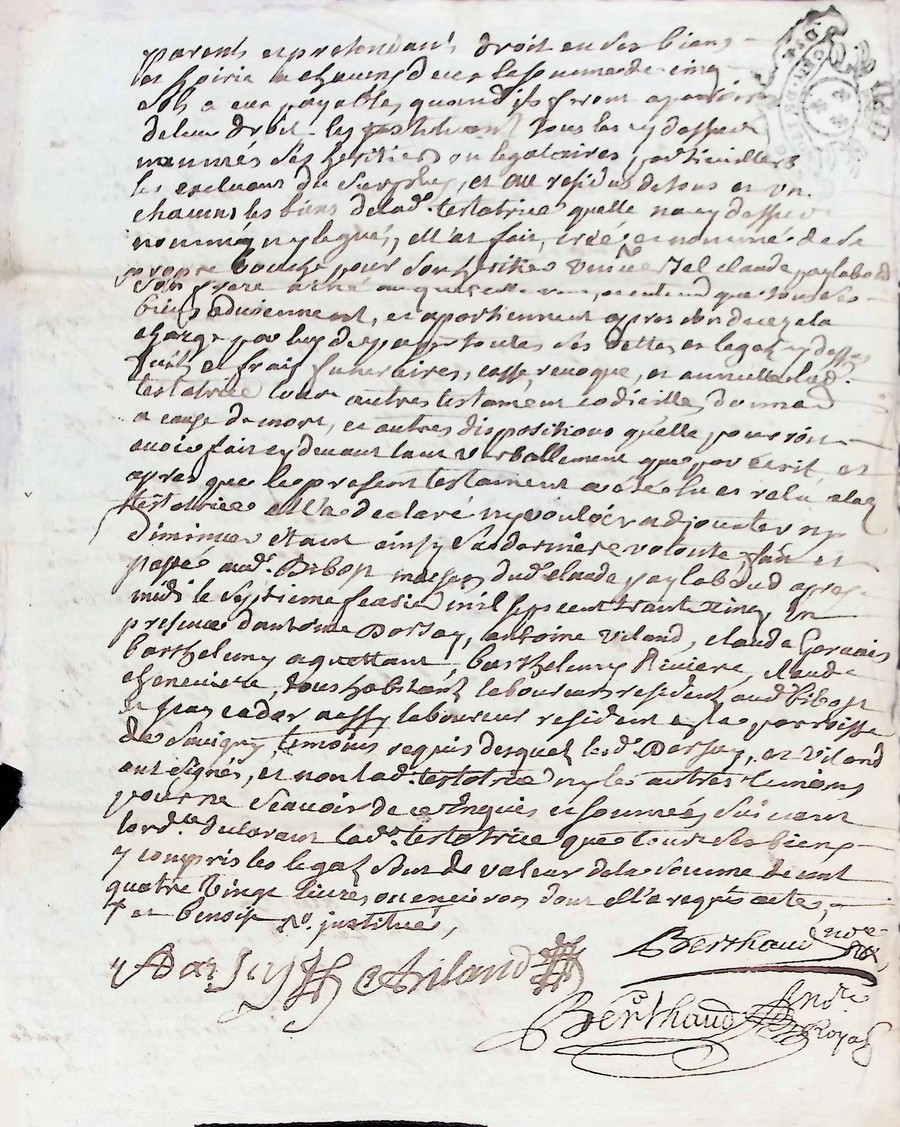 parents et pretendants droit en ses biens
et hoirie a chacuns deux la somme de cinq
sols a eux payables quand ils feront aparoir
de leur droit les instituant tous les cy dessus
nommés ses heritiers ou legataires particulliers
les excluant du surplus, et au residus de tous et un
chacuns les biens de lad. testatrice quelle na cy dessus
ny legués, ell'at fait, créé et nommé de sa
propre bouche pour son heritier sr claude paylaboud
son frere ainé auquel elle veu et entend que tous ses
biens adviennent, et apartiennent apres son decez a la
charge par luy de payer toutes ses dettes et legaz cy dessus
faits et frais funeraires, casse, revoque, et annulle lad.
testatrice tous autres testament codicille, donnaõ
a cause de mort, et autres dispositions quelle pourroit
avoir fait cy devant tant verballement que par écrit et
apres que le present testament a eté lu et relu a lad
testatrice ell'a declaré ny vouloir adjouter ny
diminuer étant ainsy sa derniere volonté, fait et
passé aud. Bibost maison dud. claude paylaboud apres
midi le septieme fevrier mil sept cent trante cinq, en
presence d'antoine Darsay, antoine Viland, claude Gervais
barthelemy aguettant, barthelemy Riviere, claude
cheneviere, tous habitant laboureurs resident aud. bibost
et françois cador aussy laboureur resident en la parroisse
de Savigny temoins requis desquel lesd. Darsay, et Viland
ont signés, et non lad. testatrice ny les autres temoins
pour ne scavoir de ce enquis et sommés suivant
lord.ce declarant lad. testatrice que tous ses biens
y compris les legaz sont de valeur de la somme de cent
quatre vingt livres ou environ dont ell'a requis actes,
et benoit justitués,
Darsay Aviland Berthaud
Berthaud nore Royal